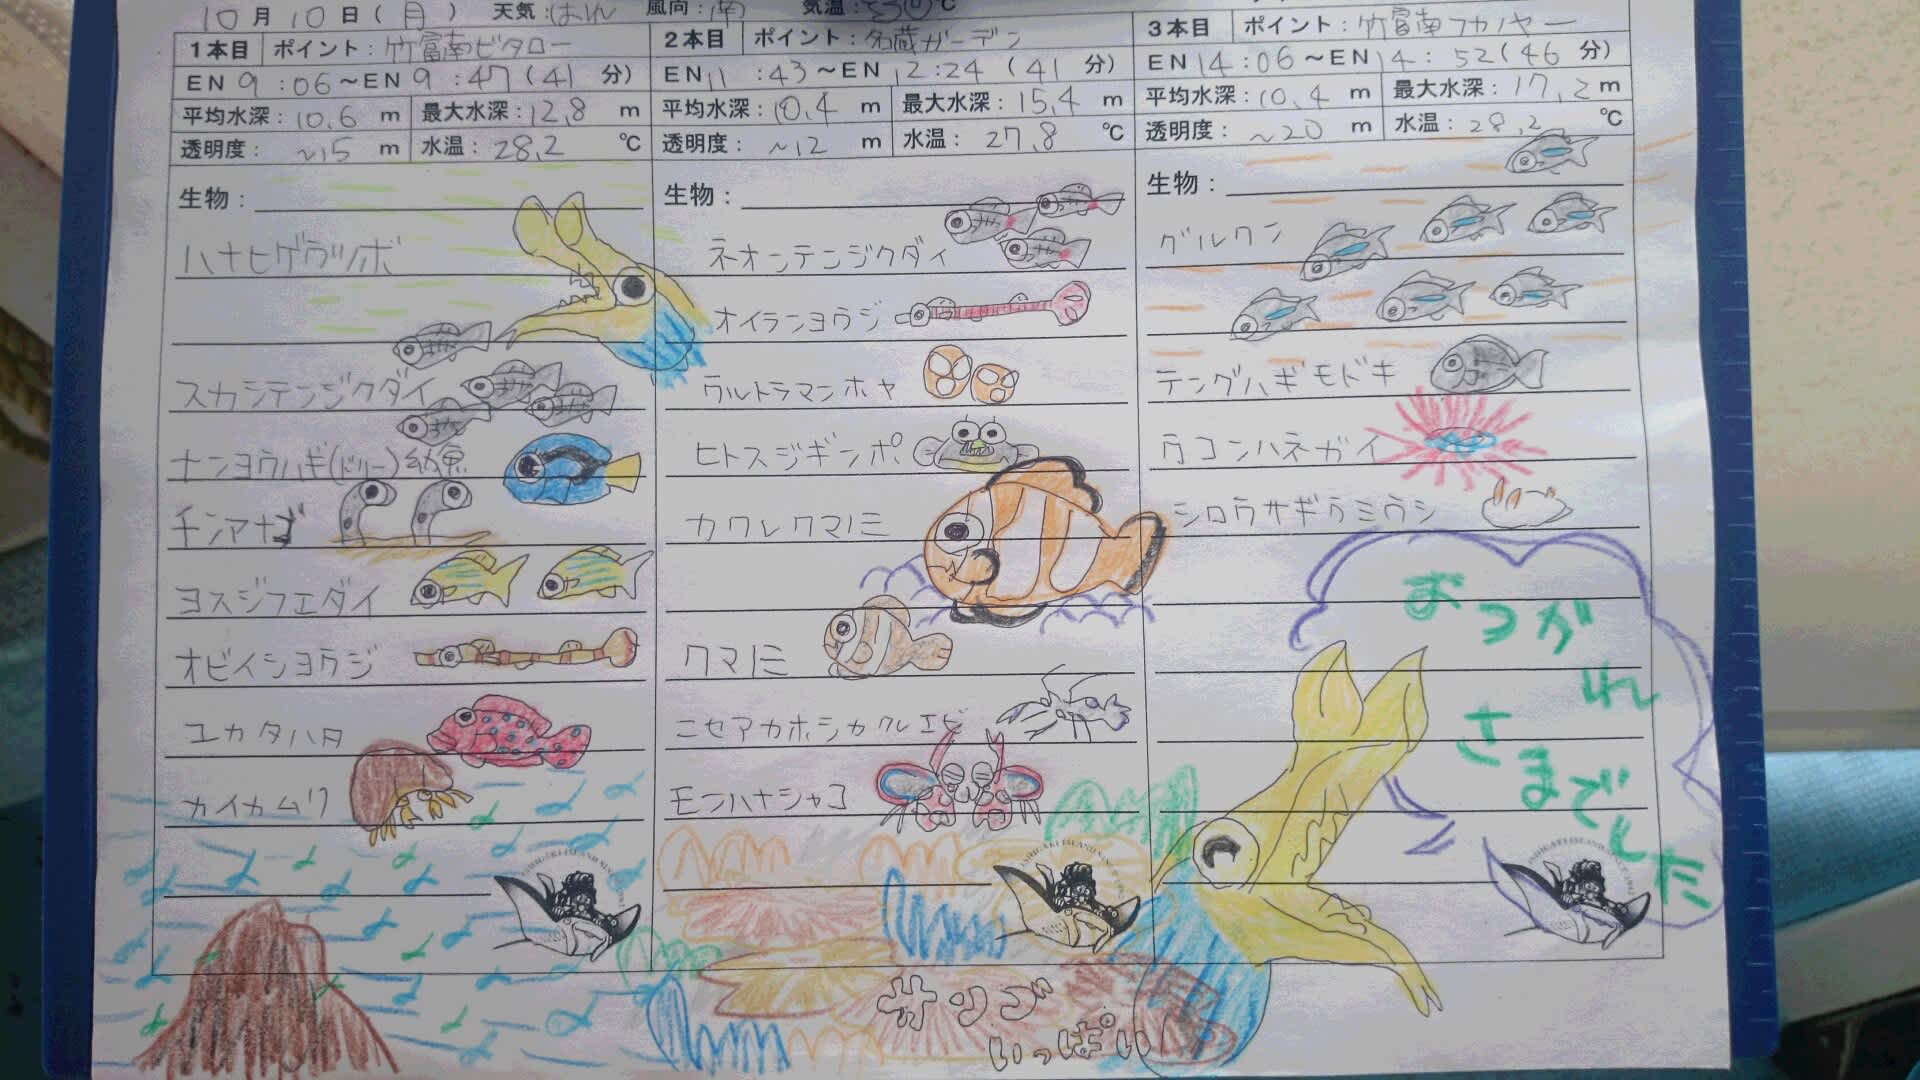 10月10日(月) 天気:はれ 風向:南 気温:30℃
1本目 ポイント:竹富南ビタロー
EN 9:06~EN 9:47(41分)
平均水深:10.6 m 最大水深:12.8 m
透明度: ~15 m 水温: 28.2 ℃
生物:
ハナヒゲウツボ
スカシテンジクダイ
ナンヨウハギ(ドリー)幼魚
チンアナゴ
ヨスジフエダイ
オビイシヨウジ
ユカタハタ
カイカムリ
2本目 ポイント:名蔵ガーデン
EN 11:43~EN 12:24(41分)
平均水深:10.4 m 最大水深:15.4 m
透明度: ~12 m 水温: 27.8 ℃
生物:
ネオンテンジクダイ
オイランヨウジ
ウルトラマンホヤ
ヒトスジギンポ
カクレクマノミ
クマノミ
ニセアカホシカクレエビ
モンハナシャコ
サンゴ
いっぱい
3本目 ポイント:竹富南
EN 14:06~EN 14:52(46分)
平均水深:10.4 m 最大水深:17.2 m
透明度: ~20 m 水温: 28.2 ℃
生物:
グルクン
テングハギモドキ
ウコンハネガイ
シロウサギウミウシ
おつかれ
さまでした